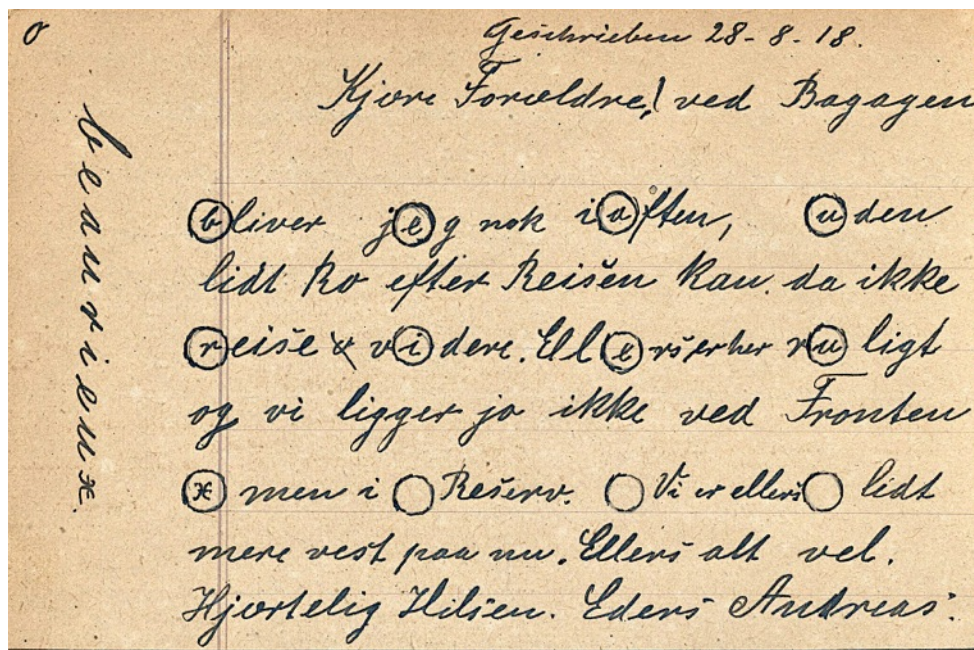 Geschrieben 28-8-18.
Kjære Forældre! ved Bagagen
bliver jeg nok iaften, uden
lidt Ro efter Reisen kan da ikke
reise x videre. Ellers er her ruligt
og vi ligger jo ikke ved Fronten
x men i Reserv. Vi er ellers lidt
mere vest paa nu. Ellers alt vel.
Hjærtelig Hilsen. Eders Andreas.
beaurieux.